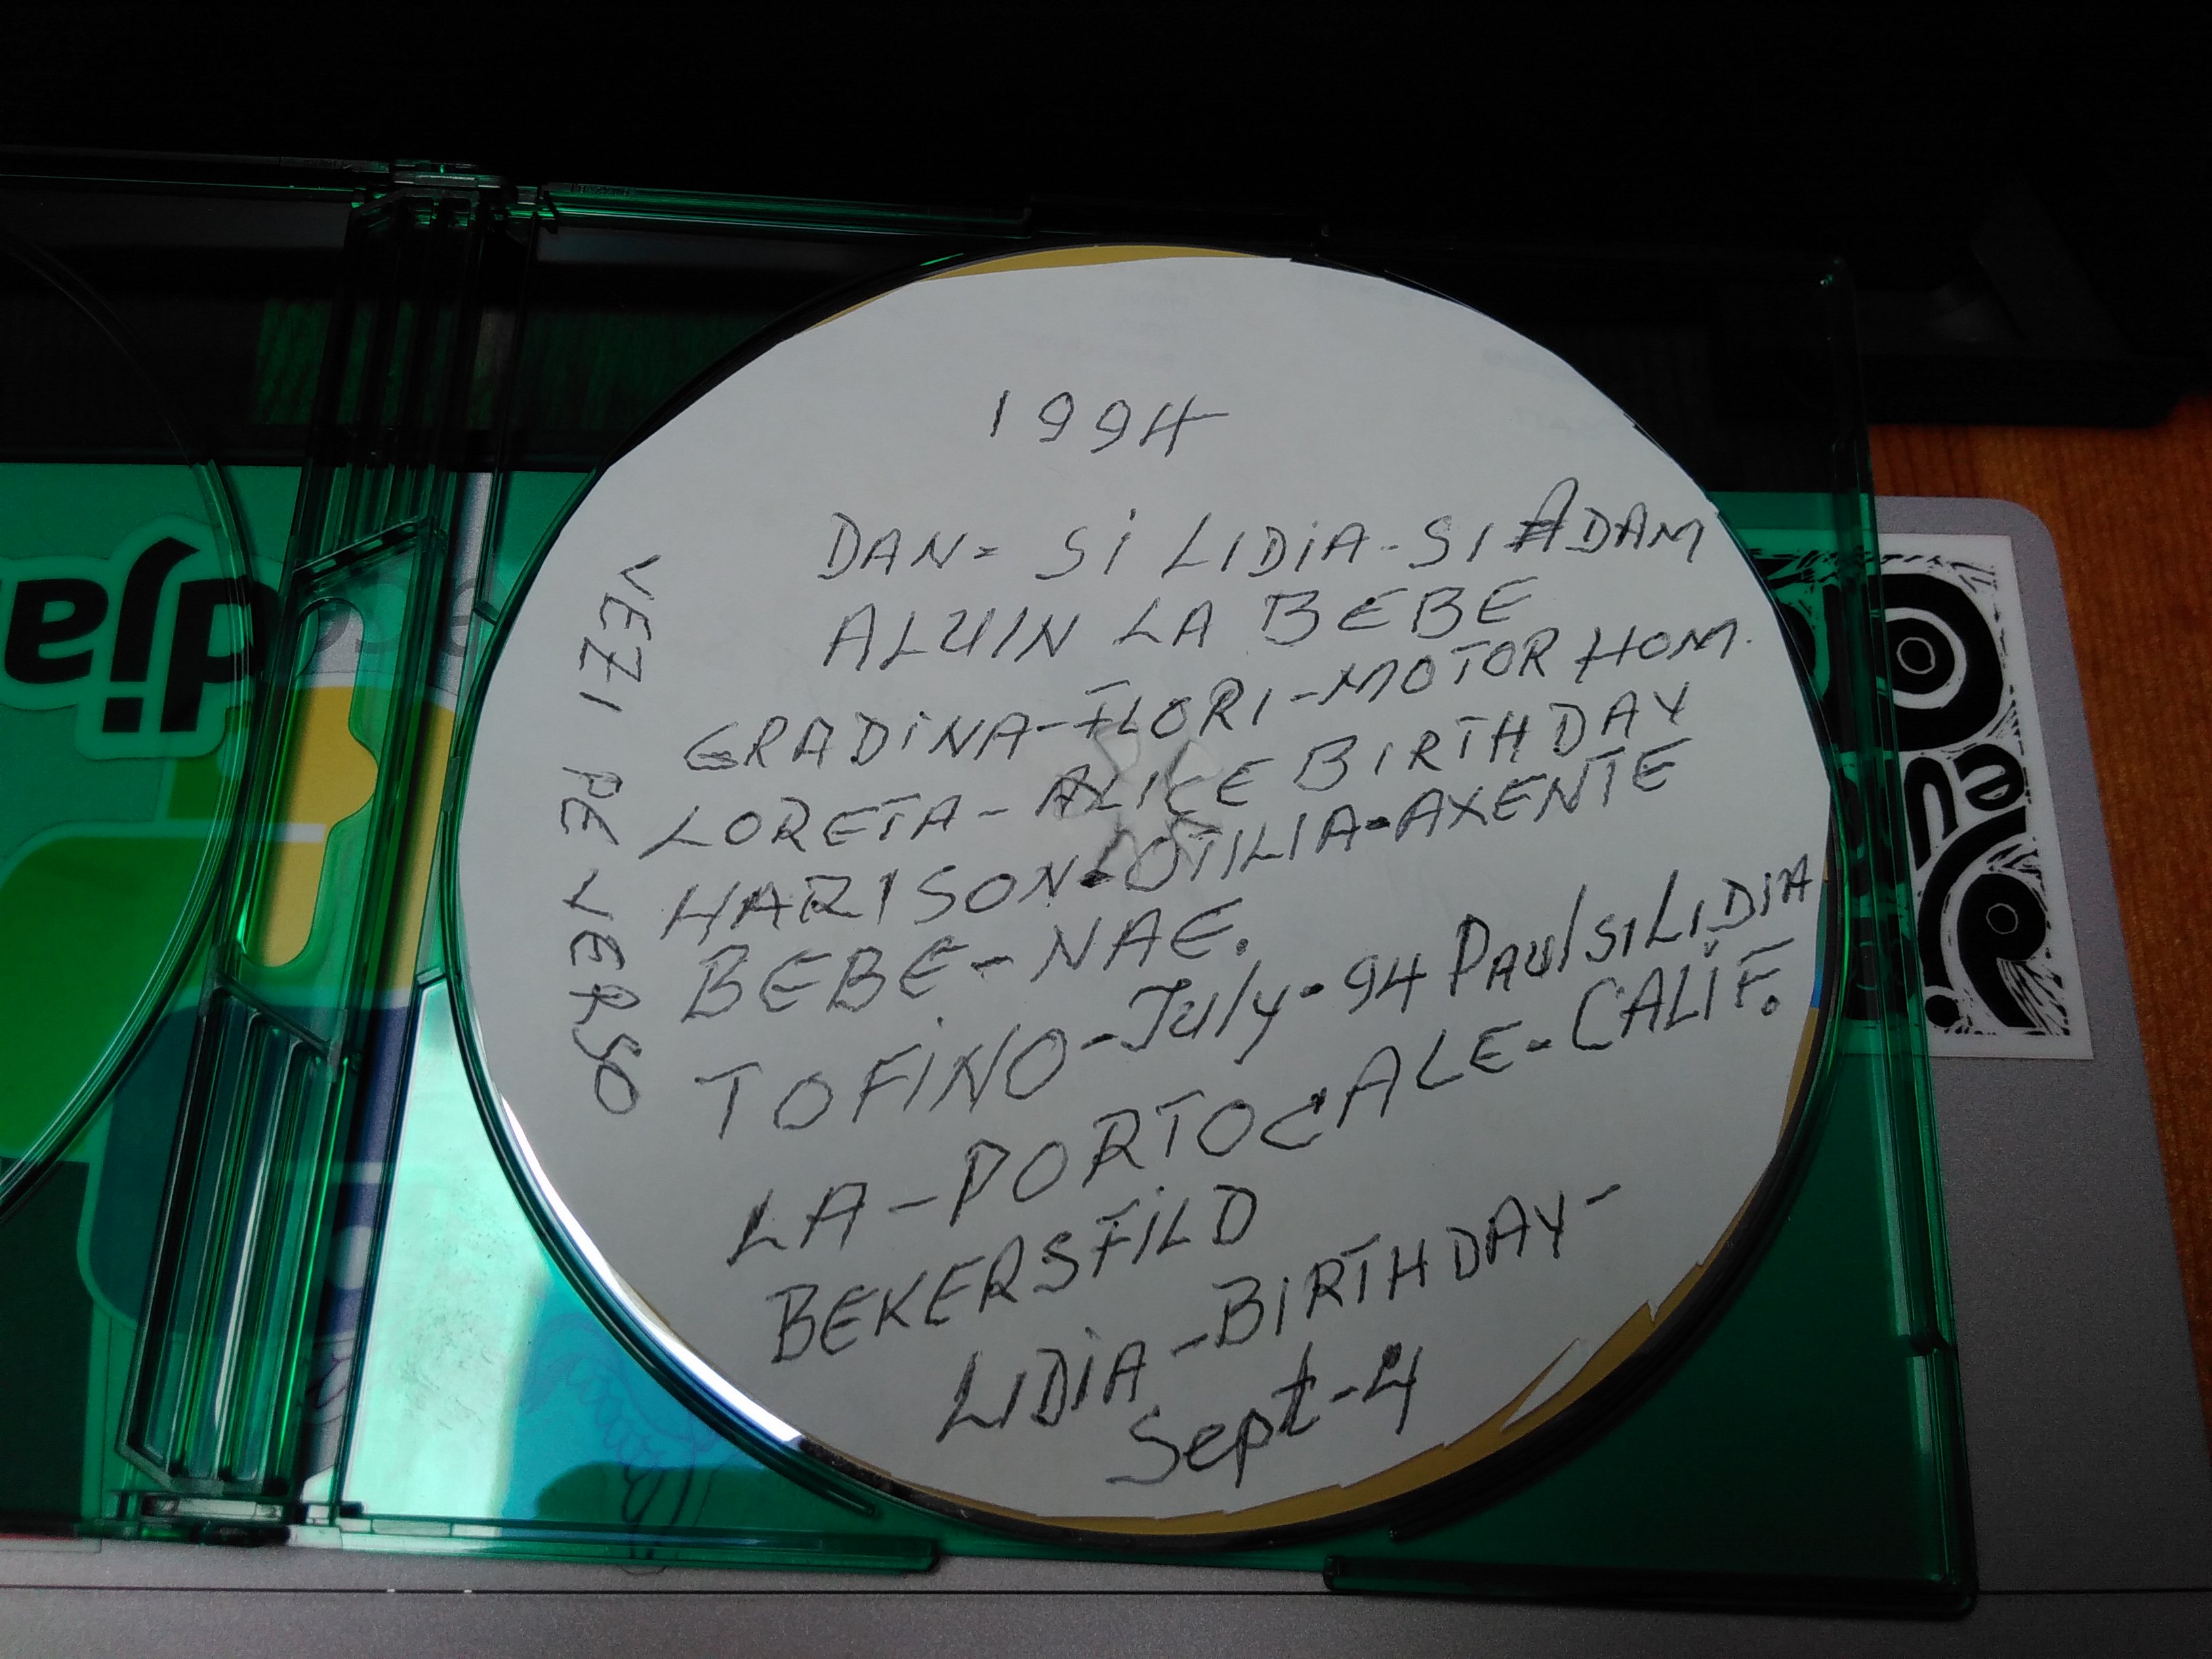 1994
DAN- SI LIDIA-SI ADAM
ALUIN LA BEBE
GRADINA-FLORI-MOTOR HOM.
LORETA-ALICE BIRTHDAY
HARISON-OTILIA-AXENTE
BEBE-NAE.
TOFINO-July-94 Paul SI LIDIA
LA-PORTOCALE-CALIF.
BEKERSFILD
LIDIA-BIRTHDAY-
Sept-4
VEZI PE VERSO
dja